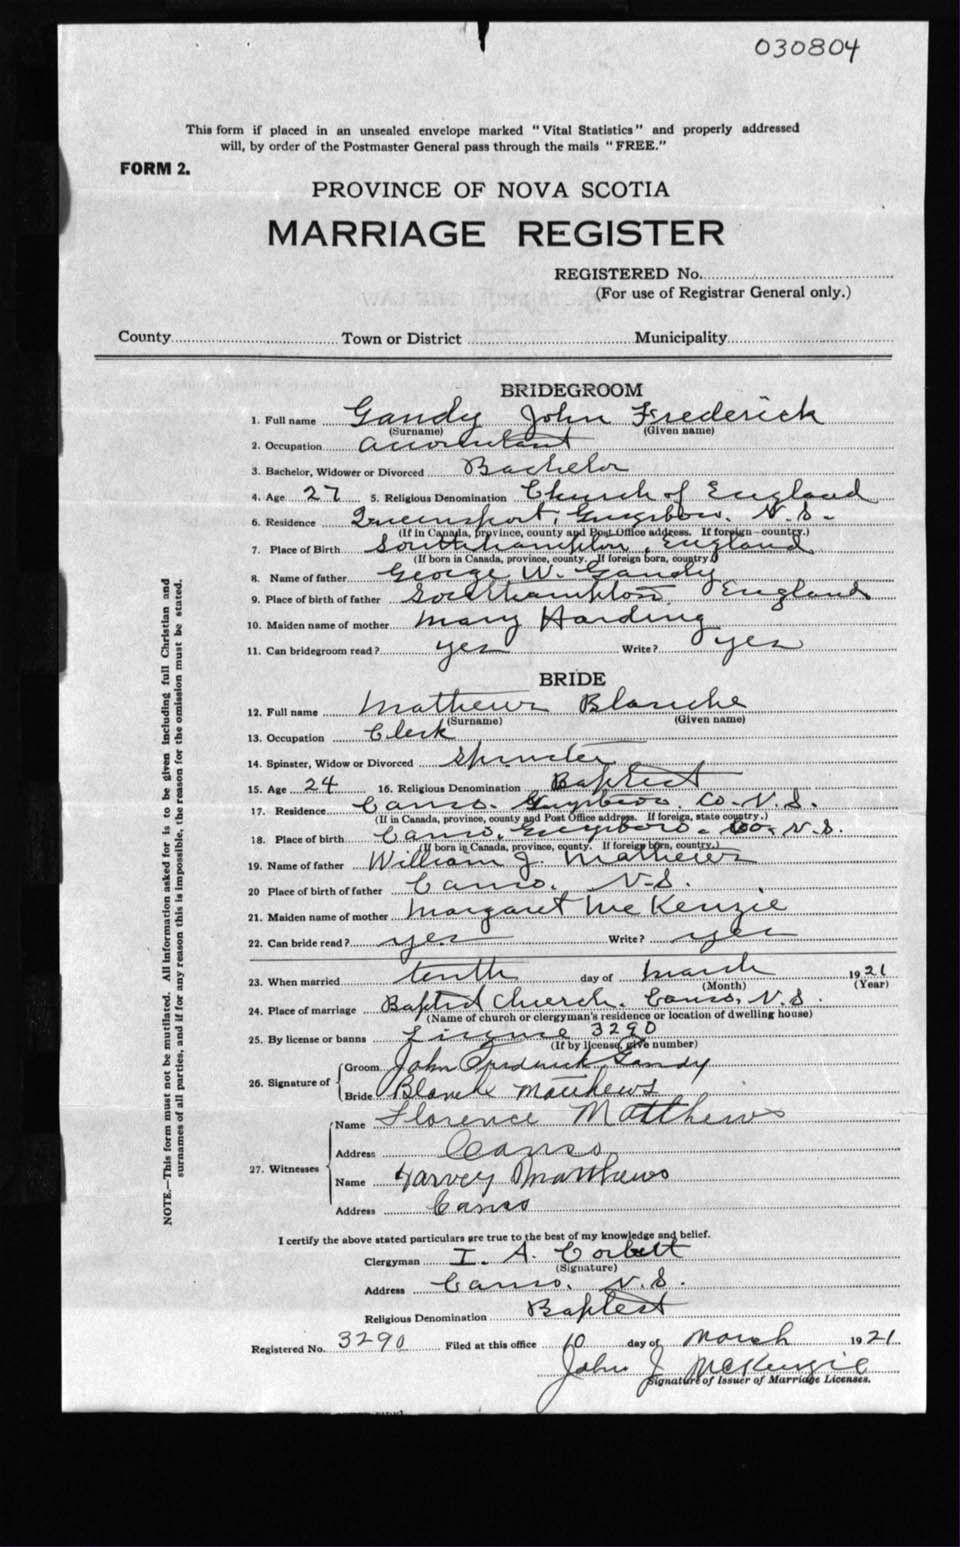 030804
This form if placed in an unsealed envelope marked "Vital Statistics" and properly addressed
will, by order of the Postmaster General pass through the mails "FREE."
FORM 2.
PROVINCE OF NOVA SCOTIA
MARRIAGE REGISTER
REGISTERED No.
(For use of Registrar General only.)
County Town or District Municipality
BRIDEGROOM
1. Full name Gandy John Frederick
(Surname) (Given name)
2. Occupation accountant
3. Bachelor, Widower or Divorced Bachelor
4. Age 27 5. Religious Denomination Church of England
6. Residence Queensport, Guysboro. N.S.
(If in Canada, province, county and Post Office address. If foreign—country.)
7. Place of Birth Southhampton, England
(If born in Canada, province, county. If foreign born, country.)
8. Name of father George W. Gandy
9. Place of birth of father Southampton, England
10. Maiden name of mother Mary Harding
11. Can bridegroom read? yes Write? yes
BRIDE
12. Full name Mathews Blanche
(Surname) (Given name)
13. Occupation Clerk
14. Spinster, Widow or Divorced Spinster
15. Age 24 16. Religious Denomination Baptist
17. Residence Canso. Guysboro. Co. N.S.
(If in Canada, province, county and Post Office address. If foreign, state country.)
18. Place of birth Canso, Guysboro. Co, N.S.
(If born in Canada, province, county. If foreign born, country.)
19. Name of father William J. Mathews
20 Place of birth of father Canso, N.S.
21. Maiden name of mother Margaret McKenzie
22. Can bride read? yes Write? yes
23. When married tenth day of March 1921
(Month) (Year)
24. Place of marriage Baptist Church. Canso, N.S.
(Name of church or clergyman's residence or location of dwelling house)
25. By license or banns License 3290
(If by license, give number)
26. Signature of Groom John Frederick Gandy
Bride Blanch Matthews
27. Witnesses Name Florence Matthews
Address Canso
Name Harvey Matthews
Address Canso
I certify the above stated particulars are true to the best of my knowledge and belief.
Clergyman I. A. Corbett
(Signature)
Address Canso, N.S.
Religious Denomination Baptist
Registered No. 3290 Filed at this office 10 day of March 1921
John J McKenzie
Signature of Issuer of Marriage Licenses.
NOTE.—This form must not be mutilated. All information asked for is to be given including full Christian and
surnames of all parties, and if for any reason this is impossible, the reason for the omission must be stated.